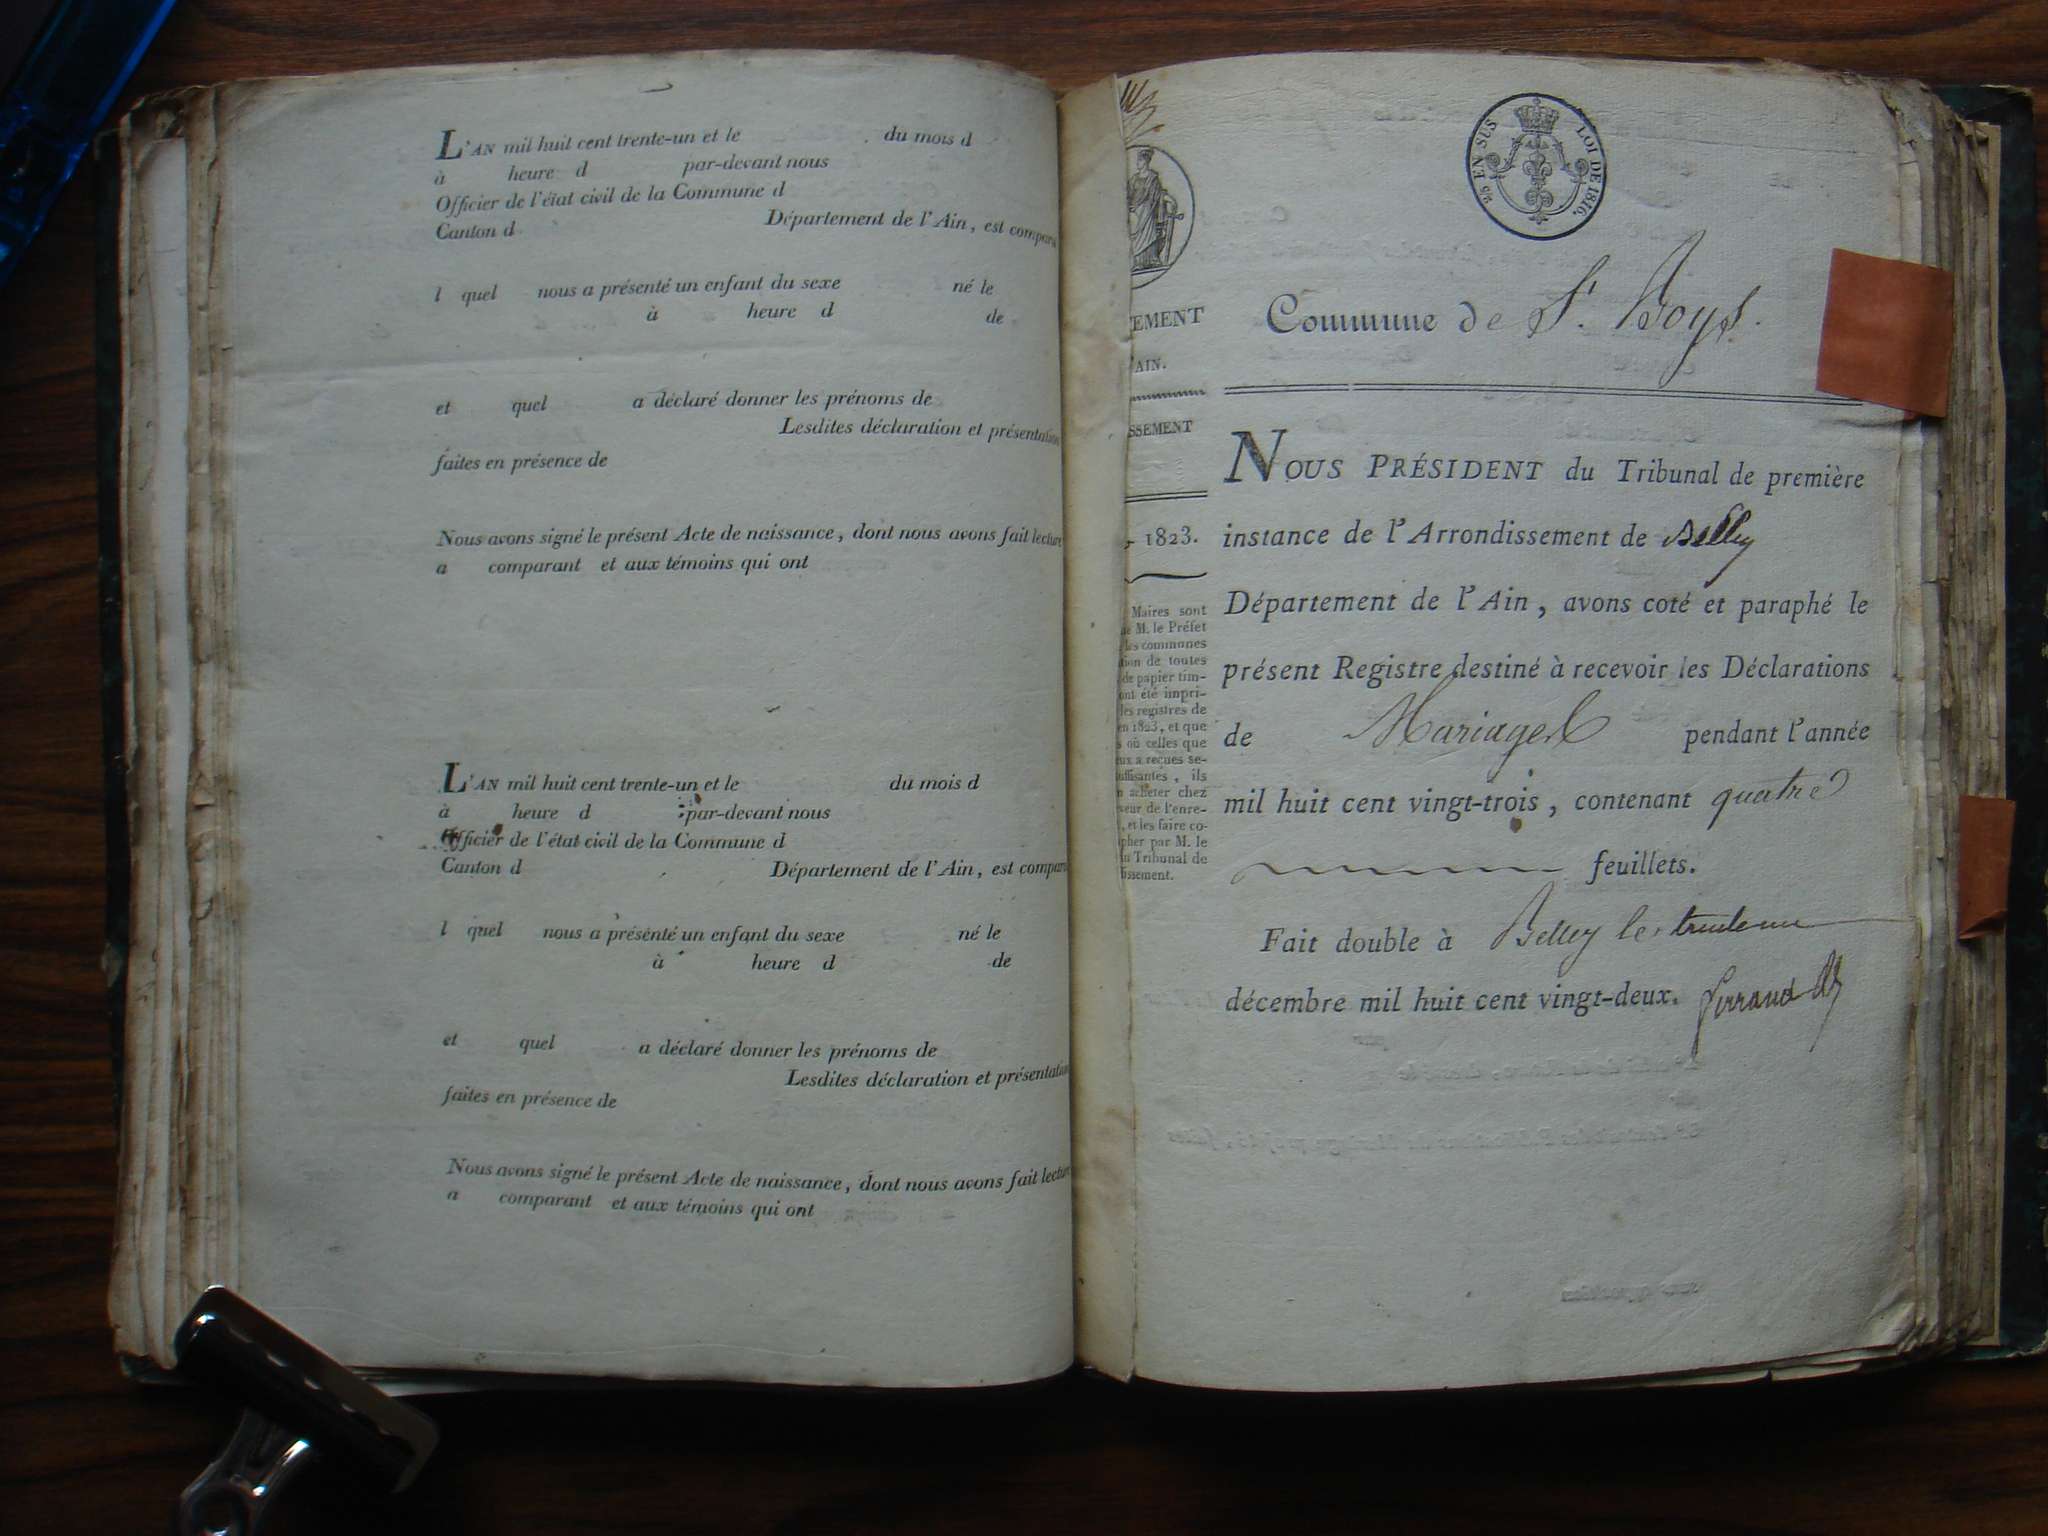 L'AN mil huit cent trente-un et le du mois d
à heure d par-devant nous
Officier de l'état civil de la Commune d
Canton d Département de l'Ain, est compara
l quel nous a présenté un enfant du sexe né le
à heure d de
et quel a déclaré donner les prénoms de
Lesdites déclaration et présentation
faites en présence de
Nous avons signé le présent Acte de naissance, dont nous avons fait lecture
a comparant et aux témoins qui ont
L'AN mil huit cent trente-un et le du mois d
à heure d par-devant nous
Officier de l'état civil de la Commune d
Canton d Département de l'Ain, est compara
l quel nous a présenté un enfant du sexe né le
à heure d de
et quel a déclaré donner les prénoms de
Lesdites déclaration et présentation
faites en présence de
Nous avons signé le présent Acte de naissance, dont nous avons fait lecture
a comparant et aux témoins qui ont
25 EN SUS LOI DE 1816.
TEMENT
AIN.
SSEMENT
1823.
Maires sont
M. le Préfet
les communes
tion de toutes
de papier tim-
ont été impri-
les registres de
en 1823, et que
où celles que
eux a reçues se-
uffisantes, ils
acheter chez
veur de l'enre-
, et les faire co-
pher par M. le
Tribunal de
issement.
Commune de St. Boys.
NOUS PRÉSIDENT du Tribunal de première
instance de l'Arrondissement de Belley
Département de l'Ain, avons coté et paraphé le
présent Registre destiné à recevoir les Déclarations
de Mariages pendant l'année
mil huit cent vingt-trois, contenant quatre
feuillets.
Fait double à Belley le trente un
décembre mil huit cent vingt-deux.